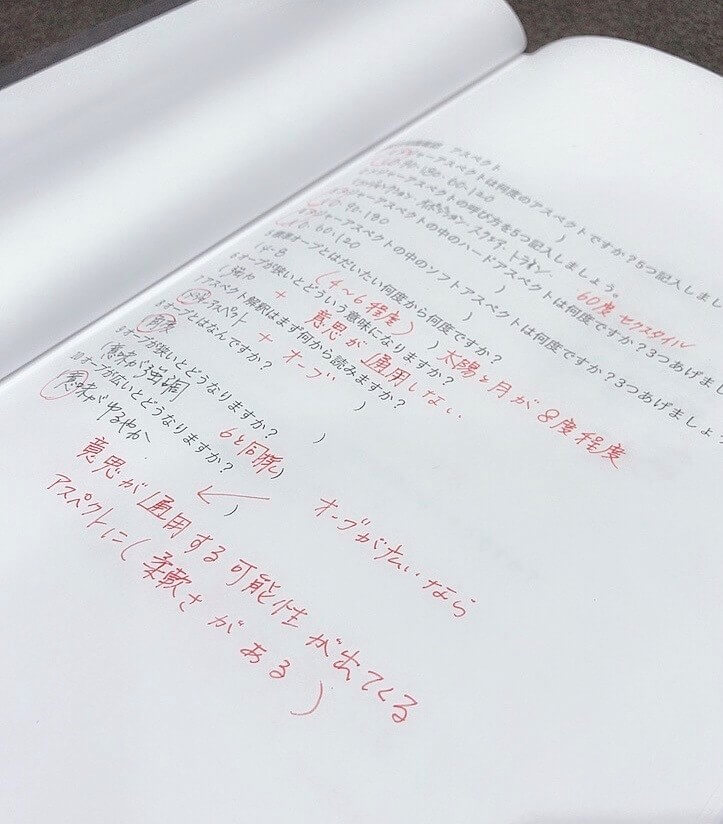 アスペクト
ジャーアスペクトは何度のアスペクトですか？5つ記入しまし
0.90.180.60.120
ジャーアスペクトの呼び方を5つ記入しましょう。
60度 セクスタイル
ジャーアスペクトの中のハードアスペクトは何度ですか？3つあげまし
0.90.180
ジャーアスペクトの中のソフトアスペクトは何度ですか？3つあげましょ
0.60.120
オーブとはだいたい何度から何度ですか？
4-8
(4〜6程度) 太陽と月が8度程度
6 オーブが狭いとどういう意味になりますか？
強力 + 意思が通用しない
7 アスペクト解釈はまず何から読みますか？
アスペクト + オーブ
オーブとはなんですか？
オーブが狭いとどうなりますか？
意味が強調 6と同様
10 オーブが広いとどうなりますか？
意味がゆるやか
オーブが広いなら
意思が通用する可能性が出てくる
アスペクトに(柔軟さがある)